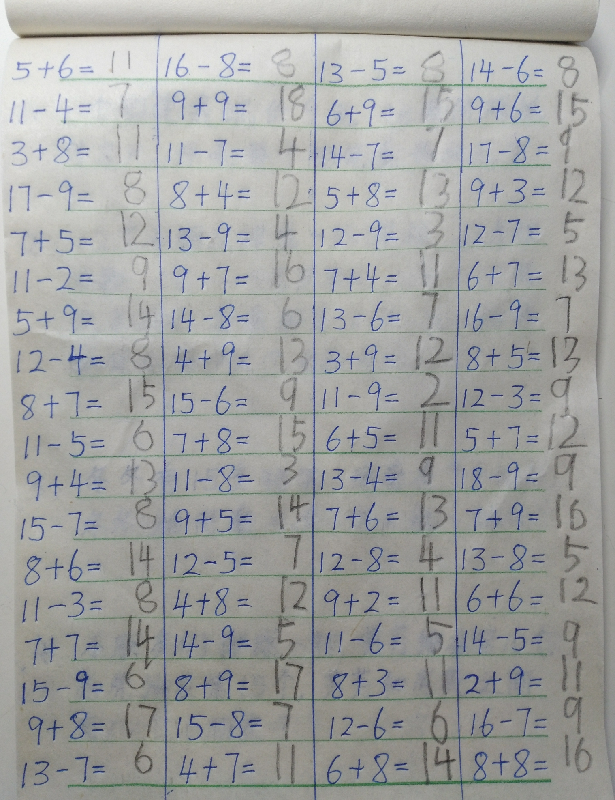 5+6= 11 16-8= 8 13-5= 8 14-6= 8
11-4= 7 9+9= 18 6+9= 15 9+6= 15
3+8= 11 11-7= 4 14-7= 7 17-8= 9
17-9= 8 8+4= 12 5+8= 13 9+3= 12
7+5= 12 13-9= 4 12-9= 3 12-7= 5
11-2= 9 9+7= 16 7+4= 11 6+7= 13
5+9= 14 14-8= 6 13-6= 7 16-9= 7
12-4= 8 4+9= 13 3+9= 12 8+5= 13
8+7= 15 15-6= 9 11-9= 2 12-3= 9
11-5= 6 7+8= 15 6+5= 11 5+7= 12
9+4= 13 11-8= 3 13-4= 9 18-9= 9
15-7= 8 9+5= 14 7+6= 13 7+9= 16
8+6= 14 12-5= 7 12-8= 4 13-8= 5
11-3= 8 4+8= 12 9+2= 11 6+6= 12
7+7= 14 14-9= 5 11-6= 5 14-5= 9
15-9= 6 8+9= 17 8+3= 11 2+9= 11
9+8= 17 15-8= 7 12-6= 6 16-7= 9
13-7= 6 4+7= 11 6+8= 14 8+8= 16